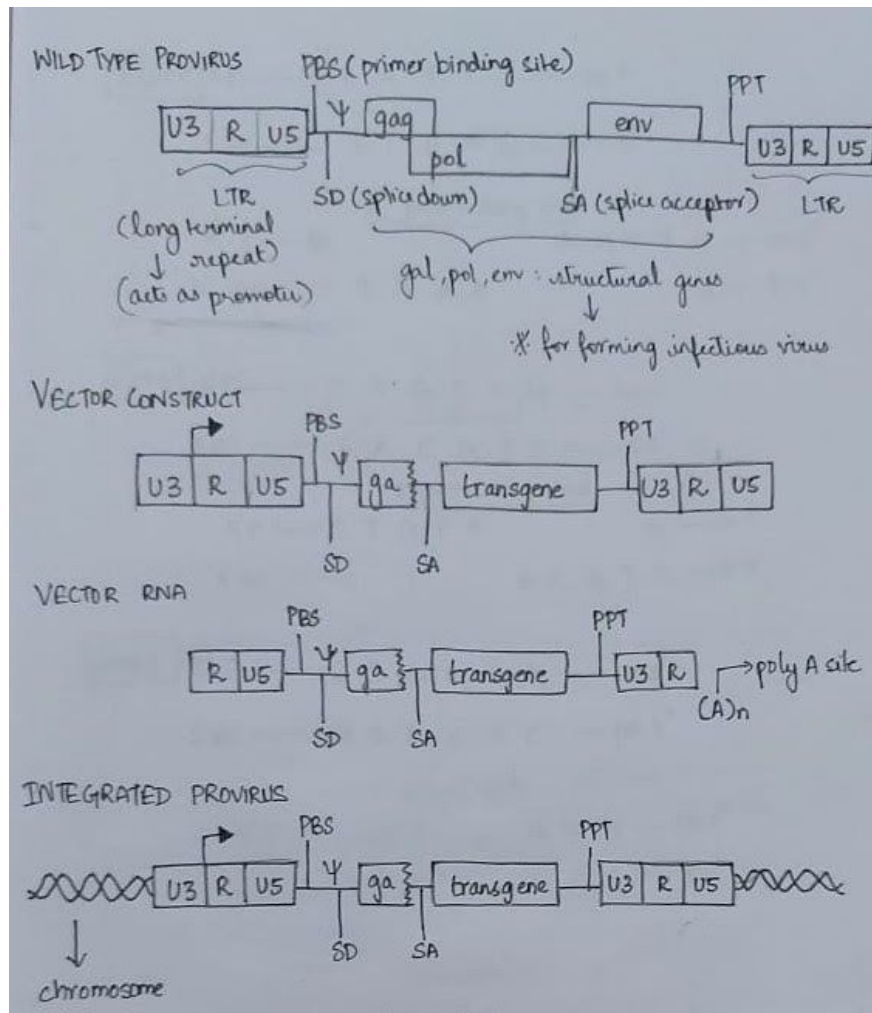 WILD TYPE PROVIRUS
PBS (primer binding site)
PPT
U3 R U5 Ψ gag pol env U3 R U5
LTR
SD (splice down)
SA (splice acceptor)
LTR
(long terminal
repeat)
(acts as promoter)
gal, pol, env : structural genes
* for forming infectious virus
VECTOR CONSTRUCT
PBS
PPT
U3 R U5 Ψ ga transgene U3 R U5
SD SA
VECTOR RNA
PBS
PPT
R U5 Ψ ga transgene U3 R poly A site
(A)n
SD SA
INTEGRATED PROVIRUS
PBS
PPT
U3 R U5 Ψ ga transgene U3 R U5
SD SA
chromosome